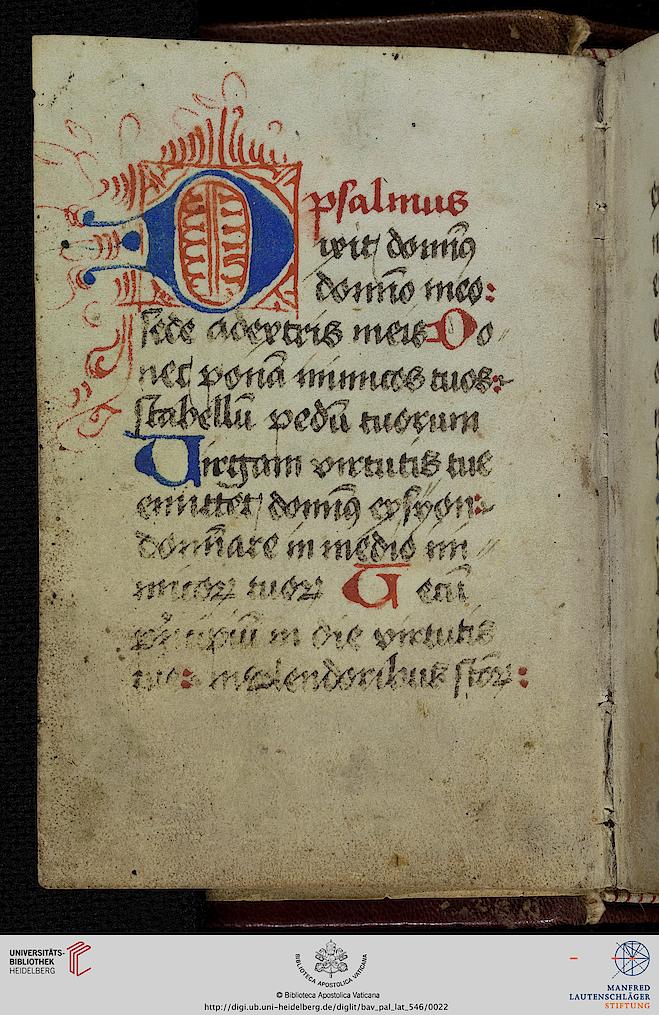 psalmus
Dixit domin᷒
domīo meo:
sede adextris meis Do
nec ponā inimicos tuos:
scabellū pedū tuorum
Virgam virtutis tue
emittet domin᷒ exsyon:
domīare in medio ini
micoꝝ tuoꝝ Tecū
pⁱncipiū in die virtutis
tue: insplendoribus sc̄toꝝ:
UNIVERSITÄTS-
BIBLIOTHEK
HEIDELBERG
BIBLIOTECA APOSTOLICA VATICANA
© Biblioteca Apostolica Vaticana
http://digi.ub.uni-heidelberg.de/diglit/bav_pal_lat_546/0022
MANFRED
LAUTENSCHLÄGER
STIFTUNG